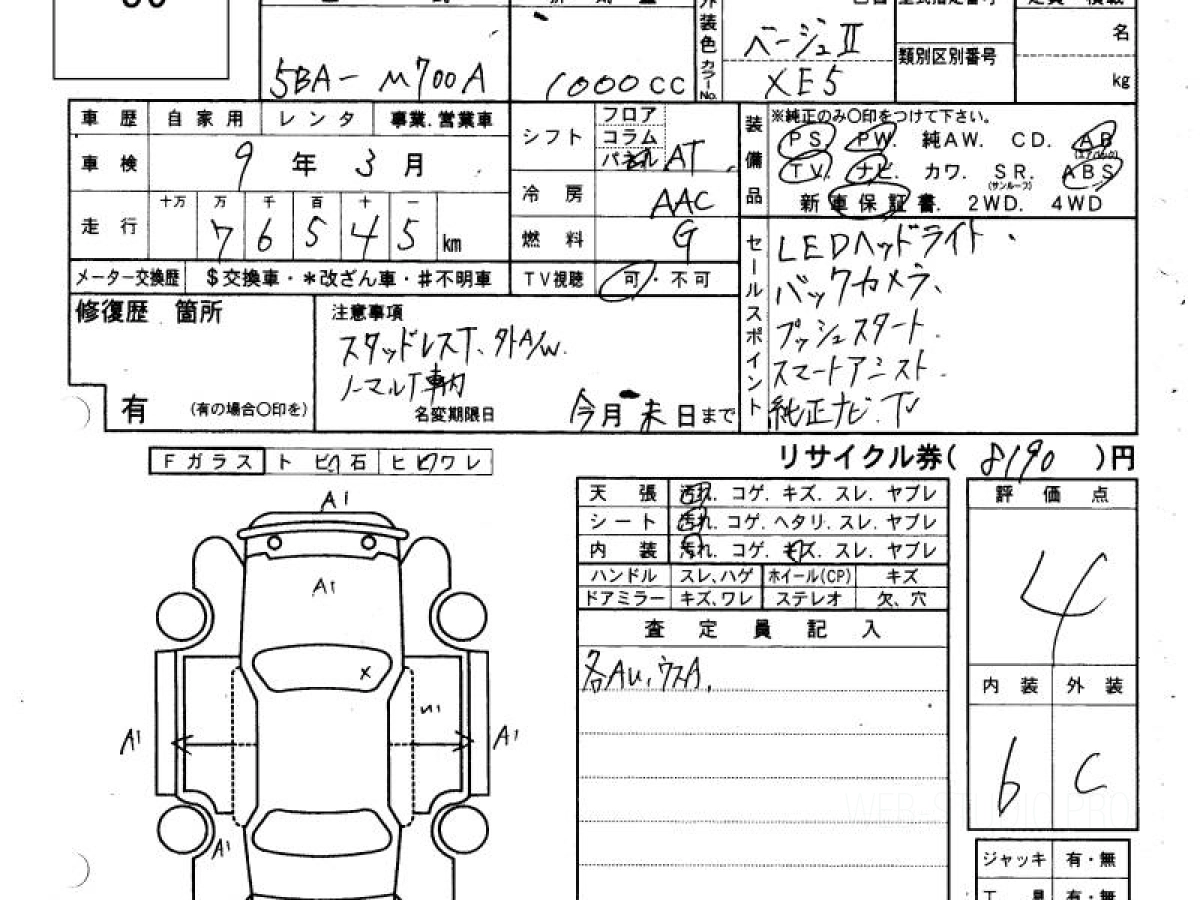 5BA-M700A
1000CC
外装色
カラーNo.
ベージュII
XE5
類別区別番号
名
kg
車歴 自家用 レンタ 事業.営業車
車検 9年3月
走行 十万 万 千 百 十 一
7 6 5 4 5 km
シフト フロア コラム パネル AT
冷房 AAC
燃料 G
装備品
※純正のみ〇印をつけて下さい。
PS. PW. 純AW. CD. AB
(エアバッグ)
TV. ナビ. カワ. SR. ABS
(サンルーフ)
新車保証書. 2WD. 4WD
メーター交換歴 $交換車・*改ざん車・#不明車
TV視聴 可・不可
セールスポイント
LEDヘッドライト・
バックカメラ、
プッシュスタート.
スマートアシスト
純正ナビ.TV
修復歴 箇所
有 (有の場合〇印を)
注意事項
スタッドレスT、外A/W.
ノーマルT車内
名変期限日 今月末日まで
リサイクル券( 8190 )円
Fガラス トビ石 ヒビワレ
A1
A1
X
A1
A1
A1
天張 汚れ. コゲ. キズ. スレ. ヤブレ
シート 汚れ. コゲ. ヘタリ. スレ. ヤブレ
内装 汚れ. コゲ. キズ. スレ. ヤブレ
ハンドル スレ、ハゲ ホイール(CP) キズ
ドアミラー キズ、ワレ ステレオ 欠、穴
査定員記入
各AU、ウスA.
評価点
4
内装 外装
6 C
ジャッキ 有・無
工具 有・無